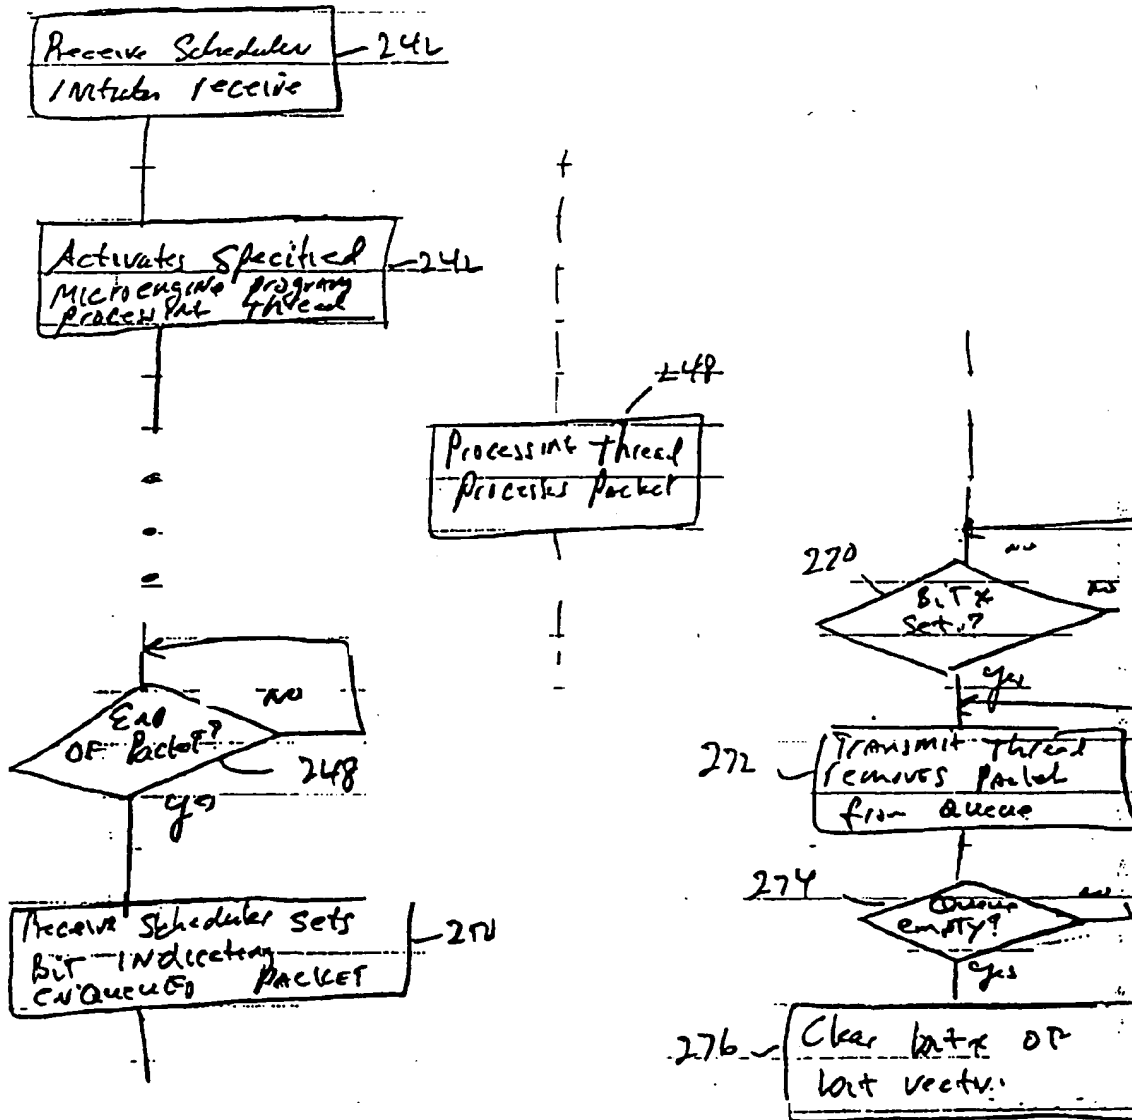 Receive Scheduler
Initiates receive
242
Activates Specified
Microengine program
processing thread
242
248
Processing thread
Processes Packet
End
OF Packet?
NO
248
yes
Receive Scheduler Sets
BIT INDICATING
ENQUEUED PACKET
250
270
BIT x
Set?
NO
NO
yes
272
Transmit thread
removes Packet
from Queue
274
Queue
empty?
NO
yes
276
Clear bit x OF
bit vector